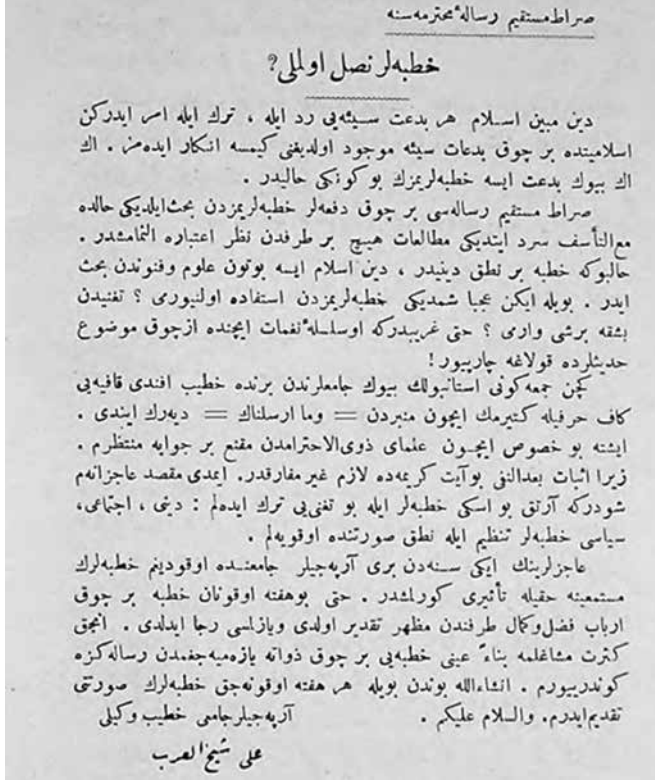 صراط مستقيم رسالهٔ محترمه‌سنه
خطبه‌لر نصل اولملی؟
دين مبين اسلام هر بدعت سيئه‌يی رد ايله ، ترك ايله امر ايدركن
اسلاميتده بر چوق بدعات سيئه موجود اولديغنی كيمسه انكار ايده‌مز . اك
اك بيوك بدعت ايسه خطبه‌لريمزك بو كونكی حاليدر .
صراط مستقيم رساله‌سی بر چوق دفعه‌لر خطبه‌لريمزدن بحث ايلديكی حالده
مع‌التأسف سرد ايتديكی مطالعات هيچ بر طرفدن نظر اعتباره النمامشدر .
حالبوكه خطبه بر نطق دينيدر ، دين اسلام ايسه بوتون علوم وفنوندن بحث
ايدر . بويله ايكن عجبا شمديكی خطبه‌لريمزدن استفاده اولنيورمی ؟ تغنيدن
بشقه برشی وارمی ؟ حتی غريبدركه اوسلسلهٔ نغمات ايچنده ازچوق موضوع
حديثلرده قولاغه چارپيور !
كچن جمعه كونی استانبولك بيوك جامعلرندن برنده خطيب افندی قافيه‌يی
كاف حرفيله كتيرمك ايچون منبردن = وما ارسلناك = ديه‌رك ايندی .
ايشته بو خصوص ايچون علمای ذوی‌الاحترامدن مقنع بر جوابه منتظرم .
زيرا اثبات بعدالنفی بو آيت كريمه‌ده لازم غير مفارقدر. ايمدی مقصد عاجزانه‌م
شودركه آرتق بو اسكی خطبه‌لر ايله بو تغنی‌يی ترك ايده‌لم : دينی ، اجتماعی،
سياسی خطبه‌لر تنظيم ايله نطق صورتنده اوقويه‌لم .
عاجزلرينك ايكی سنه‌دن بری آرپه‌جيلر جامعنده اوقوديغم خطبه‌لرك
مستمعينه حقيله تأثيری كورلمشدر . حتی بوهفته اوقونان خطبه بر چوق
ارباب فضل وكمال طرفندن مظهر تقدير اولدی ويازلمسی رجا ايدلدی . انجق
كثرت مشاغلمه بناءً عينی خطبه‌يی بر چوق ذواته يازه‌ميه‌جغمدن رساله‌كزه
كوندرييورم . انشاءالله بوندن بويله هر هفته اوقونه‌جق خطبه‌لرك صورتنی
تقديم ايدرم. والسلام عليكم . آرپه‌جيلر جامعی خطيب وكيلی
علی شيخ العرب